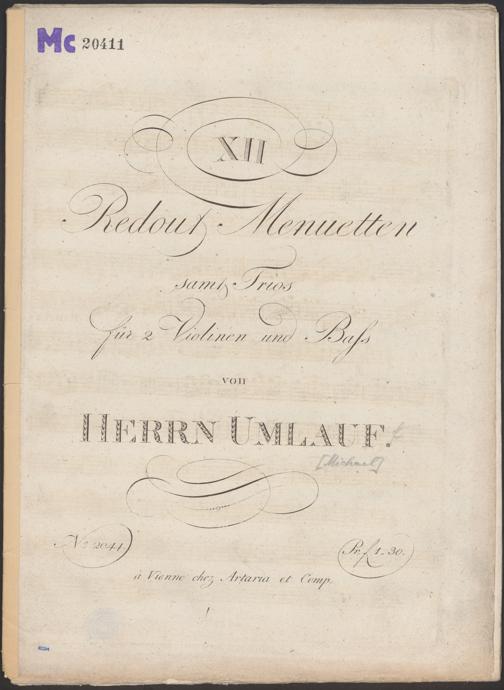 Mc 20411
XII
Redout Menuetten
samt Trios
für 2 Violinen und Baſs
von
HERRN UMLAUF. f
[Michael]
No 2041.
Pr. f 1_30.
à Vienne chez Artaria et Comp.